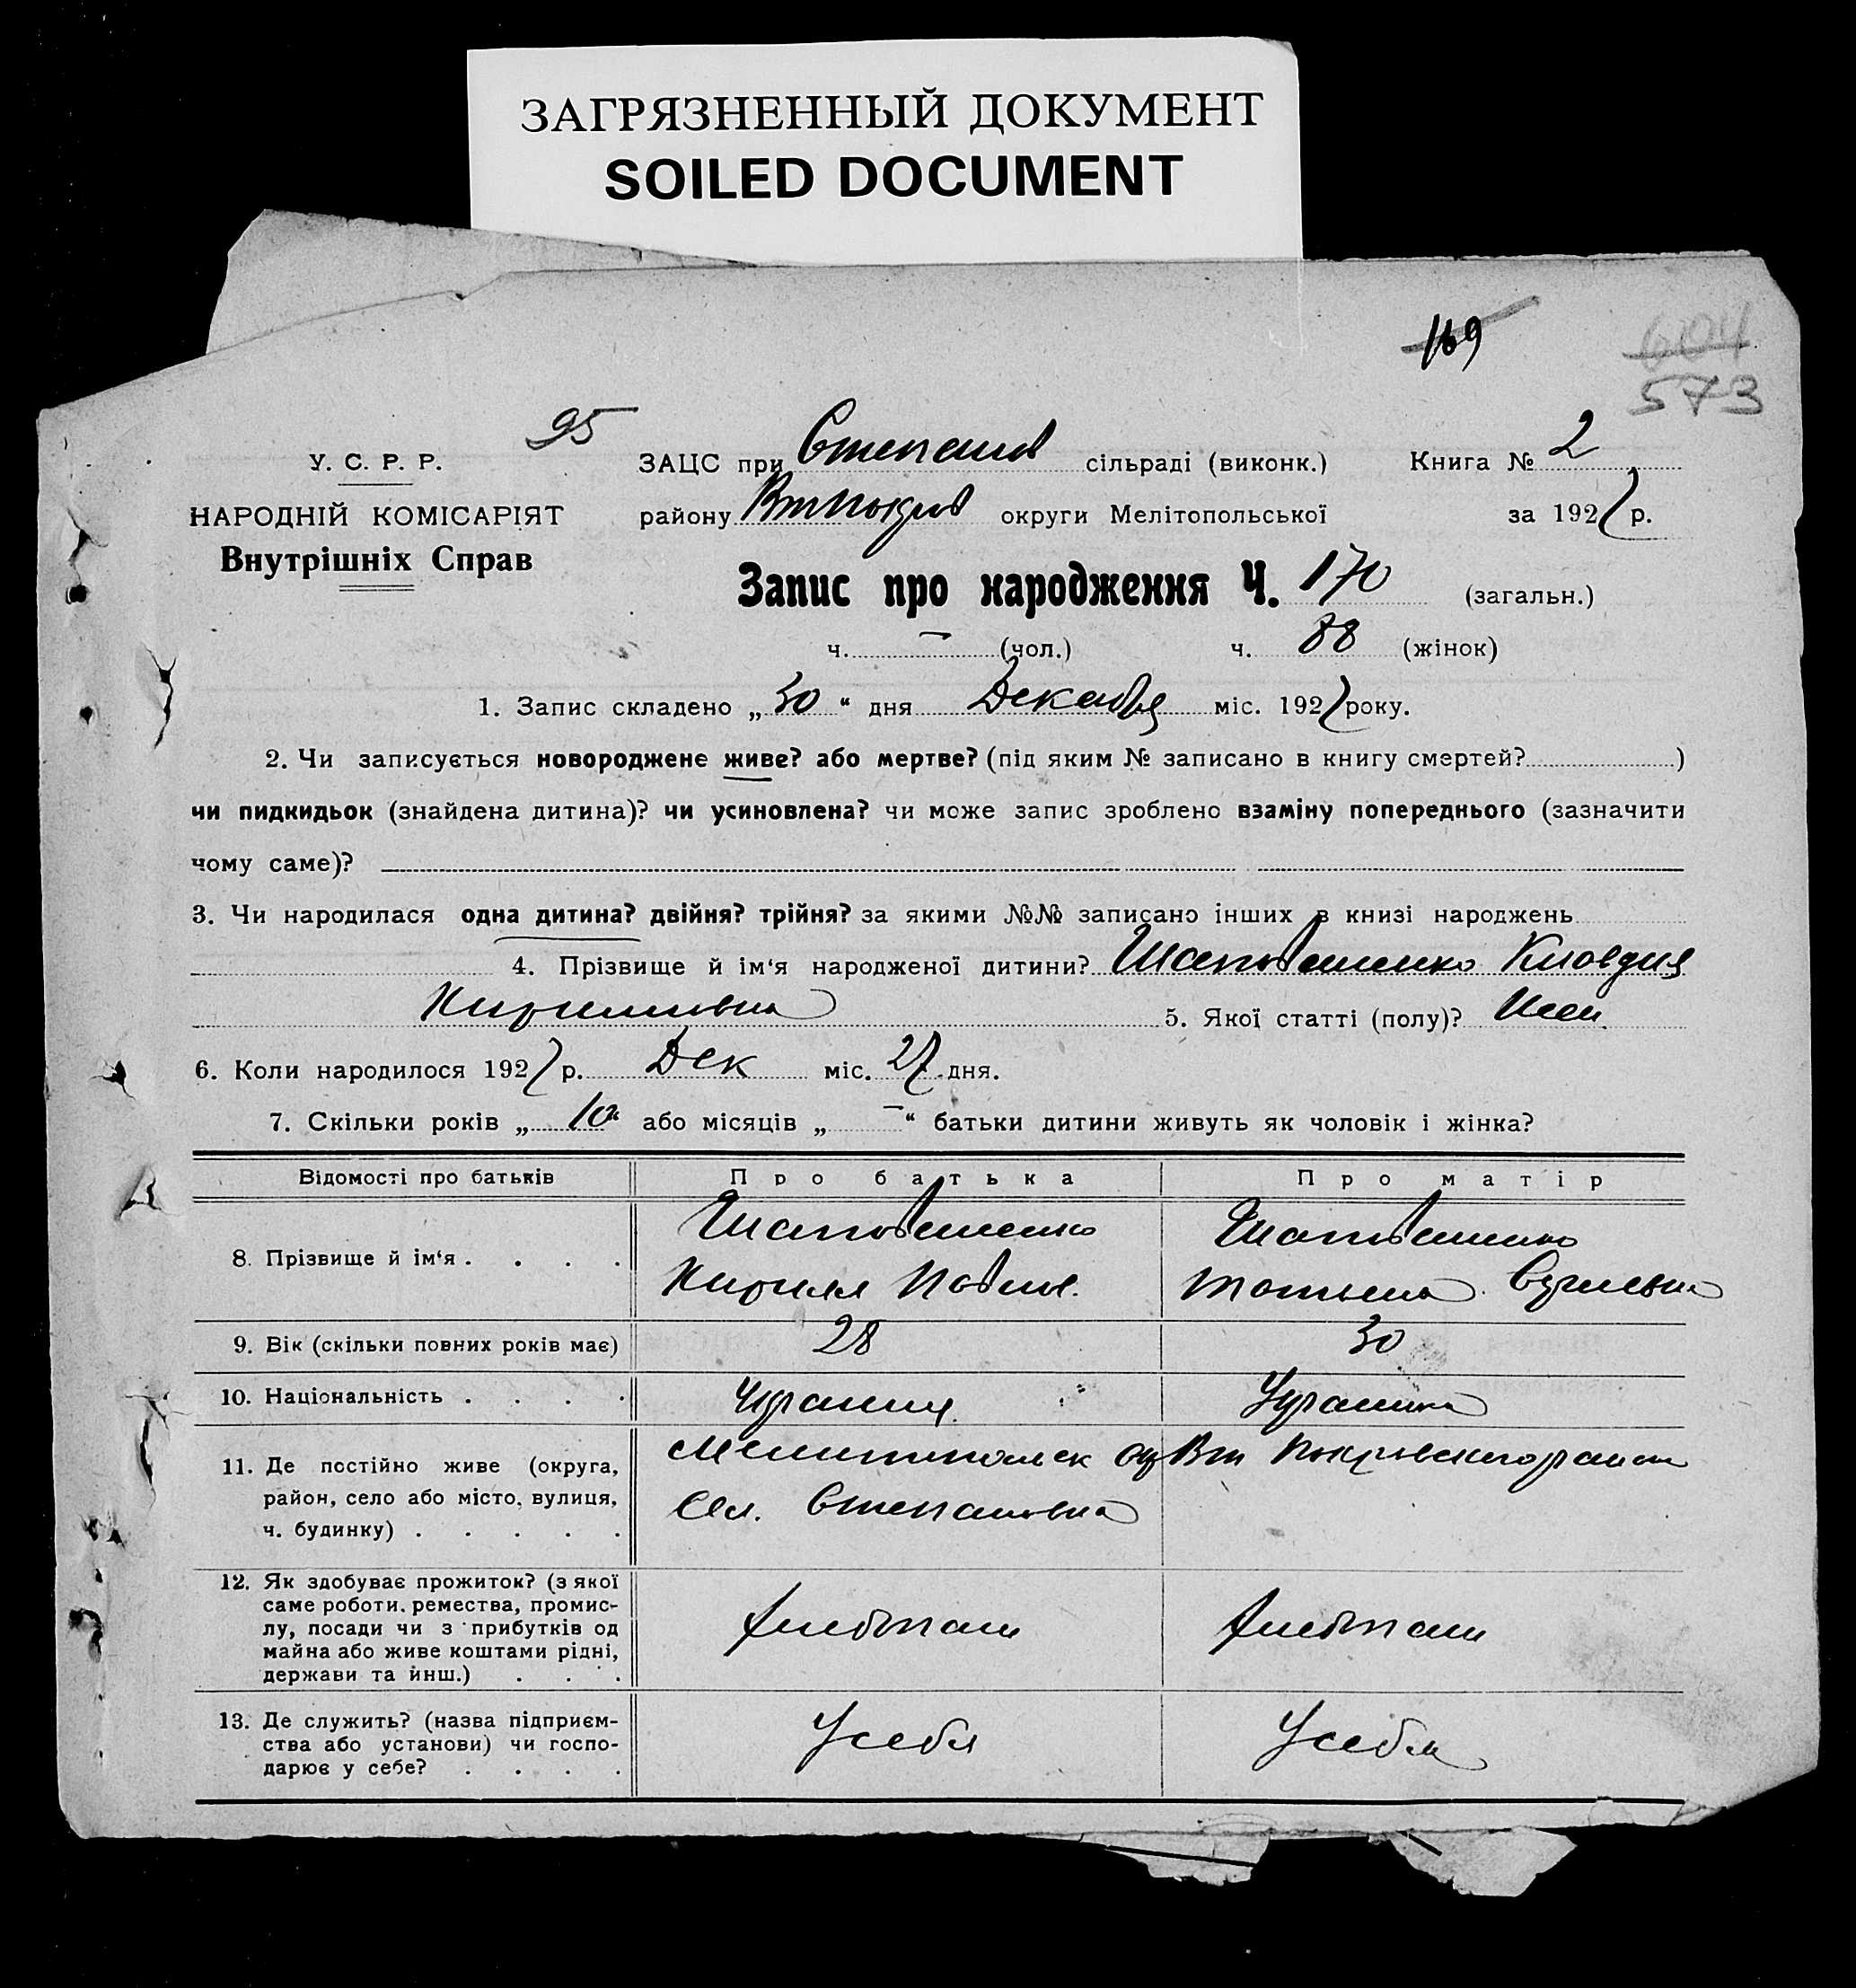 ЗАГРЯЗНЕННЫЙ ДОКУМЕНТ
SOILED DOCUMENT
169
604
573
95
У. С. Р. Р.
НАРОДНІЙ КОМІСАРІЯТ
Внутрішніх Справ
ЗАЦС при Степанов сільраді (виконк.) Книга № 2
району ВтПокров округи Мелітопольської за 1927 р.
Запис про народження Ч. 170 (загальн.)
ч. — (чол.) ч. 88 (жінок)
1. Запис складено „ 30 “ дня Декабря міс. 1927 року.
2. Чи записується новороджене живе? або мертве? (під яким № записано в книгу смертей? )
чи пидкидьок (знайдена дитина)? чи усиновлена? чи може запис зроблено взаміну попереднього (зазначити
чому саме)?
3. Чи народилася одна дитина? двійня? трійня? за якими №№ записано інших в книзі народжень
4. Прізвище й ім‘я народженої дитини? Шаповаленко Кловдия
Кирилловна 5. Якої статті (полу)? Жен.
6. Коли народилося 1927 р. Дек міс. 27 дня.
7. Скільки років „ 10 “ або місяців „ — “ батьки дитини живуть як чоловік і жінка?
Відомості про батьків Про батька Про матір
8. Прізвище й ім‘я . . . . Шаповаленко Шаповаленко
Кирилл Павлов. Татьяна
9. Вік (скільки повних років має) 28 30
10. Національність . . . . Украинец Украинка
11. Де постійно живе (округа, район, село або місто, вулиця, ч. будинку) . . . . . Мелитопольск окр Вт Покровского района
Сел. Степановка
12. Як здобуває прожиток? (з якої саме роботи, ремества, промислу, посади чи з прибутків од майна або живе коштами рідні, держави та инш.) . . . Хлебопаш Хлебопаш
13. Де служить? (назва підприємства або установи) чи господарює у себе? . . . . У себя У себя